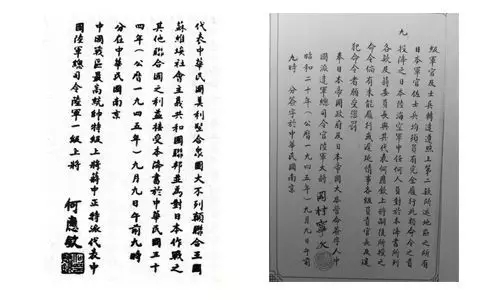 代表中華民國美利堅合眾國大不列顛聯合王國
蘇維埃社會主義共和國聯邦並為對日本作戰之
其他聯合國之利益接受本降書於中華民國三十
四年（公曆一九四五年）九月九日午前九時
分在中華民國南京
中國戰區最高統帥特級上將蔣中正特派代表中
國陸軍總司令陸軍一級上將
何應欽
級軍官及士兵轉達遵照上第二款所述地區之所有
日本軍官佐士兵均須負有完全履行此類命令之責
九
投降之日本陸海空軍中任何人員對於本降書所列
各款及蔣委員長與其代表何應欽上將嗣後所授之
命令倘有未能履行或遲延情事各級負責官長及違
犯命令者願受懲罰
奉日本帝國政府及日本帝國大本營命簽字人中
國派遣軍總司令官陸軍大將
岡村寧次
昭和二十年（公曆一九四五年）九月九日午前
九時
分簽字於中華民國南京